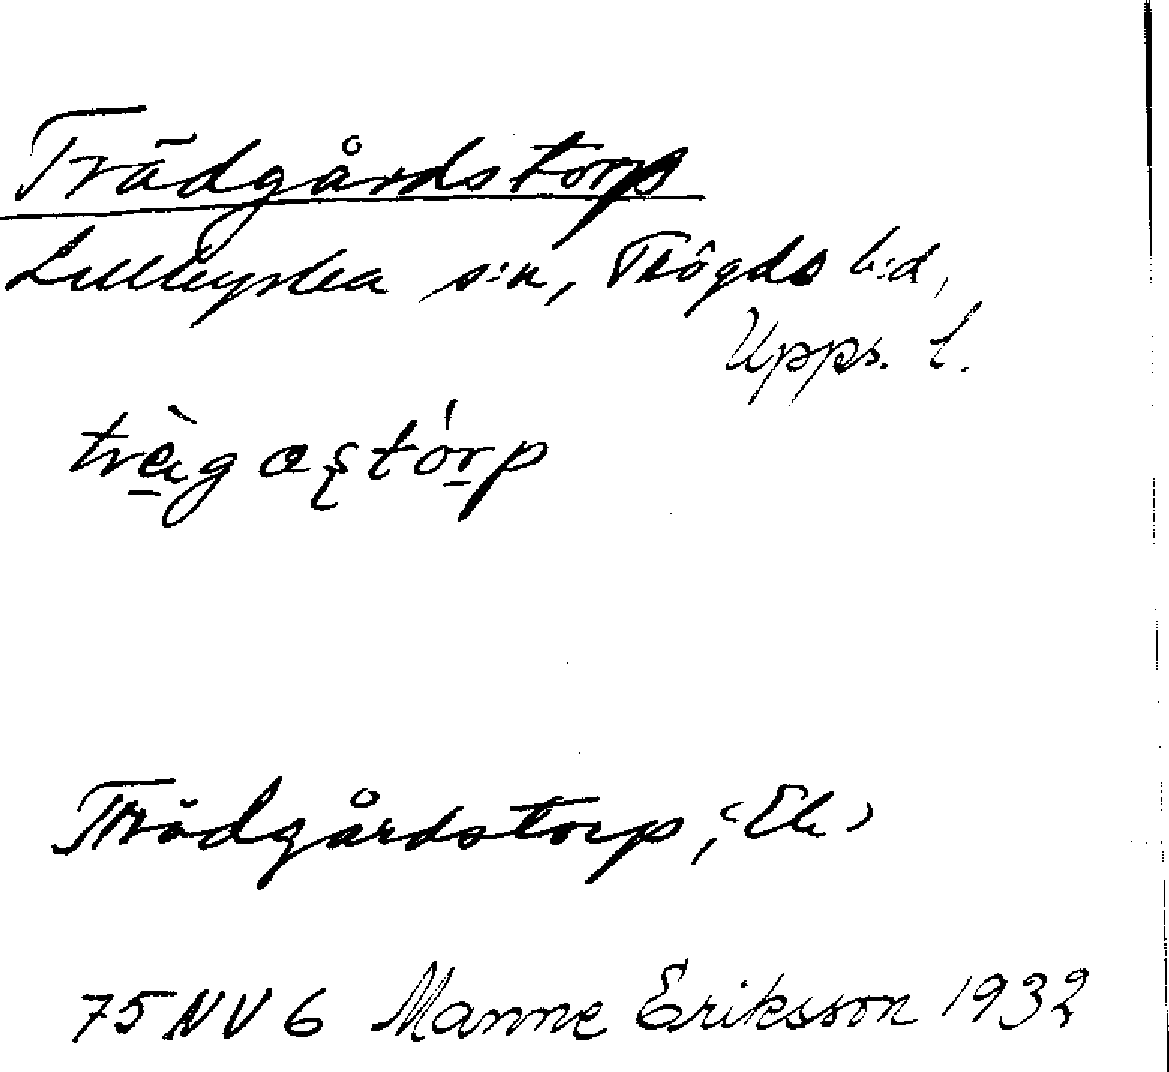 Trädgårdstorp
Lillkyrka s:n, Trögds h:d,
Upps. l.
trèga storp
Trädgårdstorp, (Ek)
75 NV 6 Manne Eriksson 1932